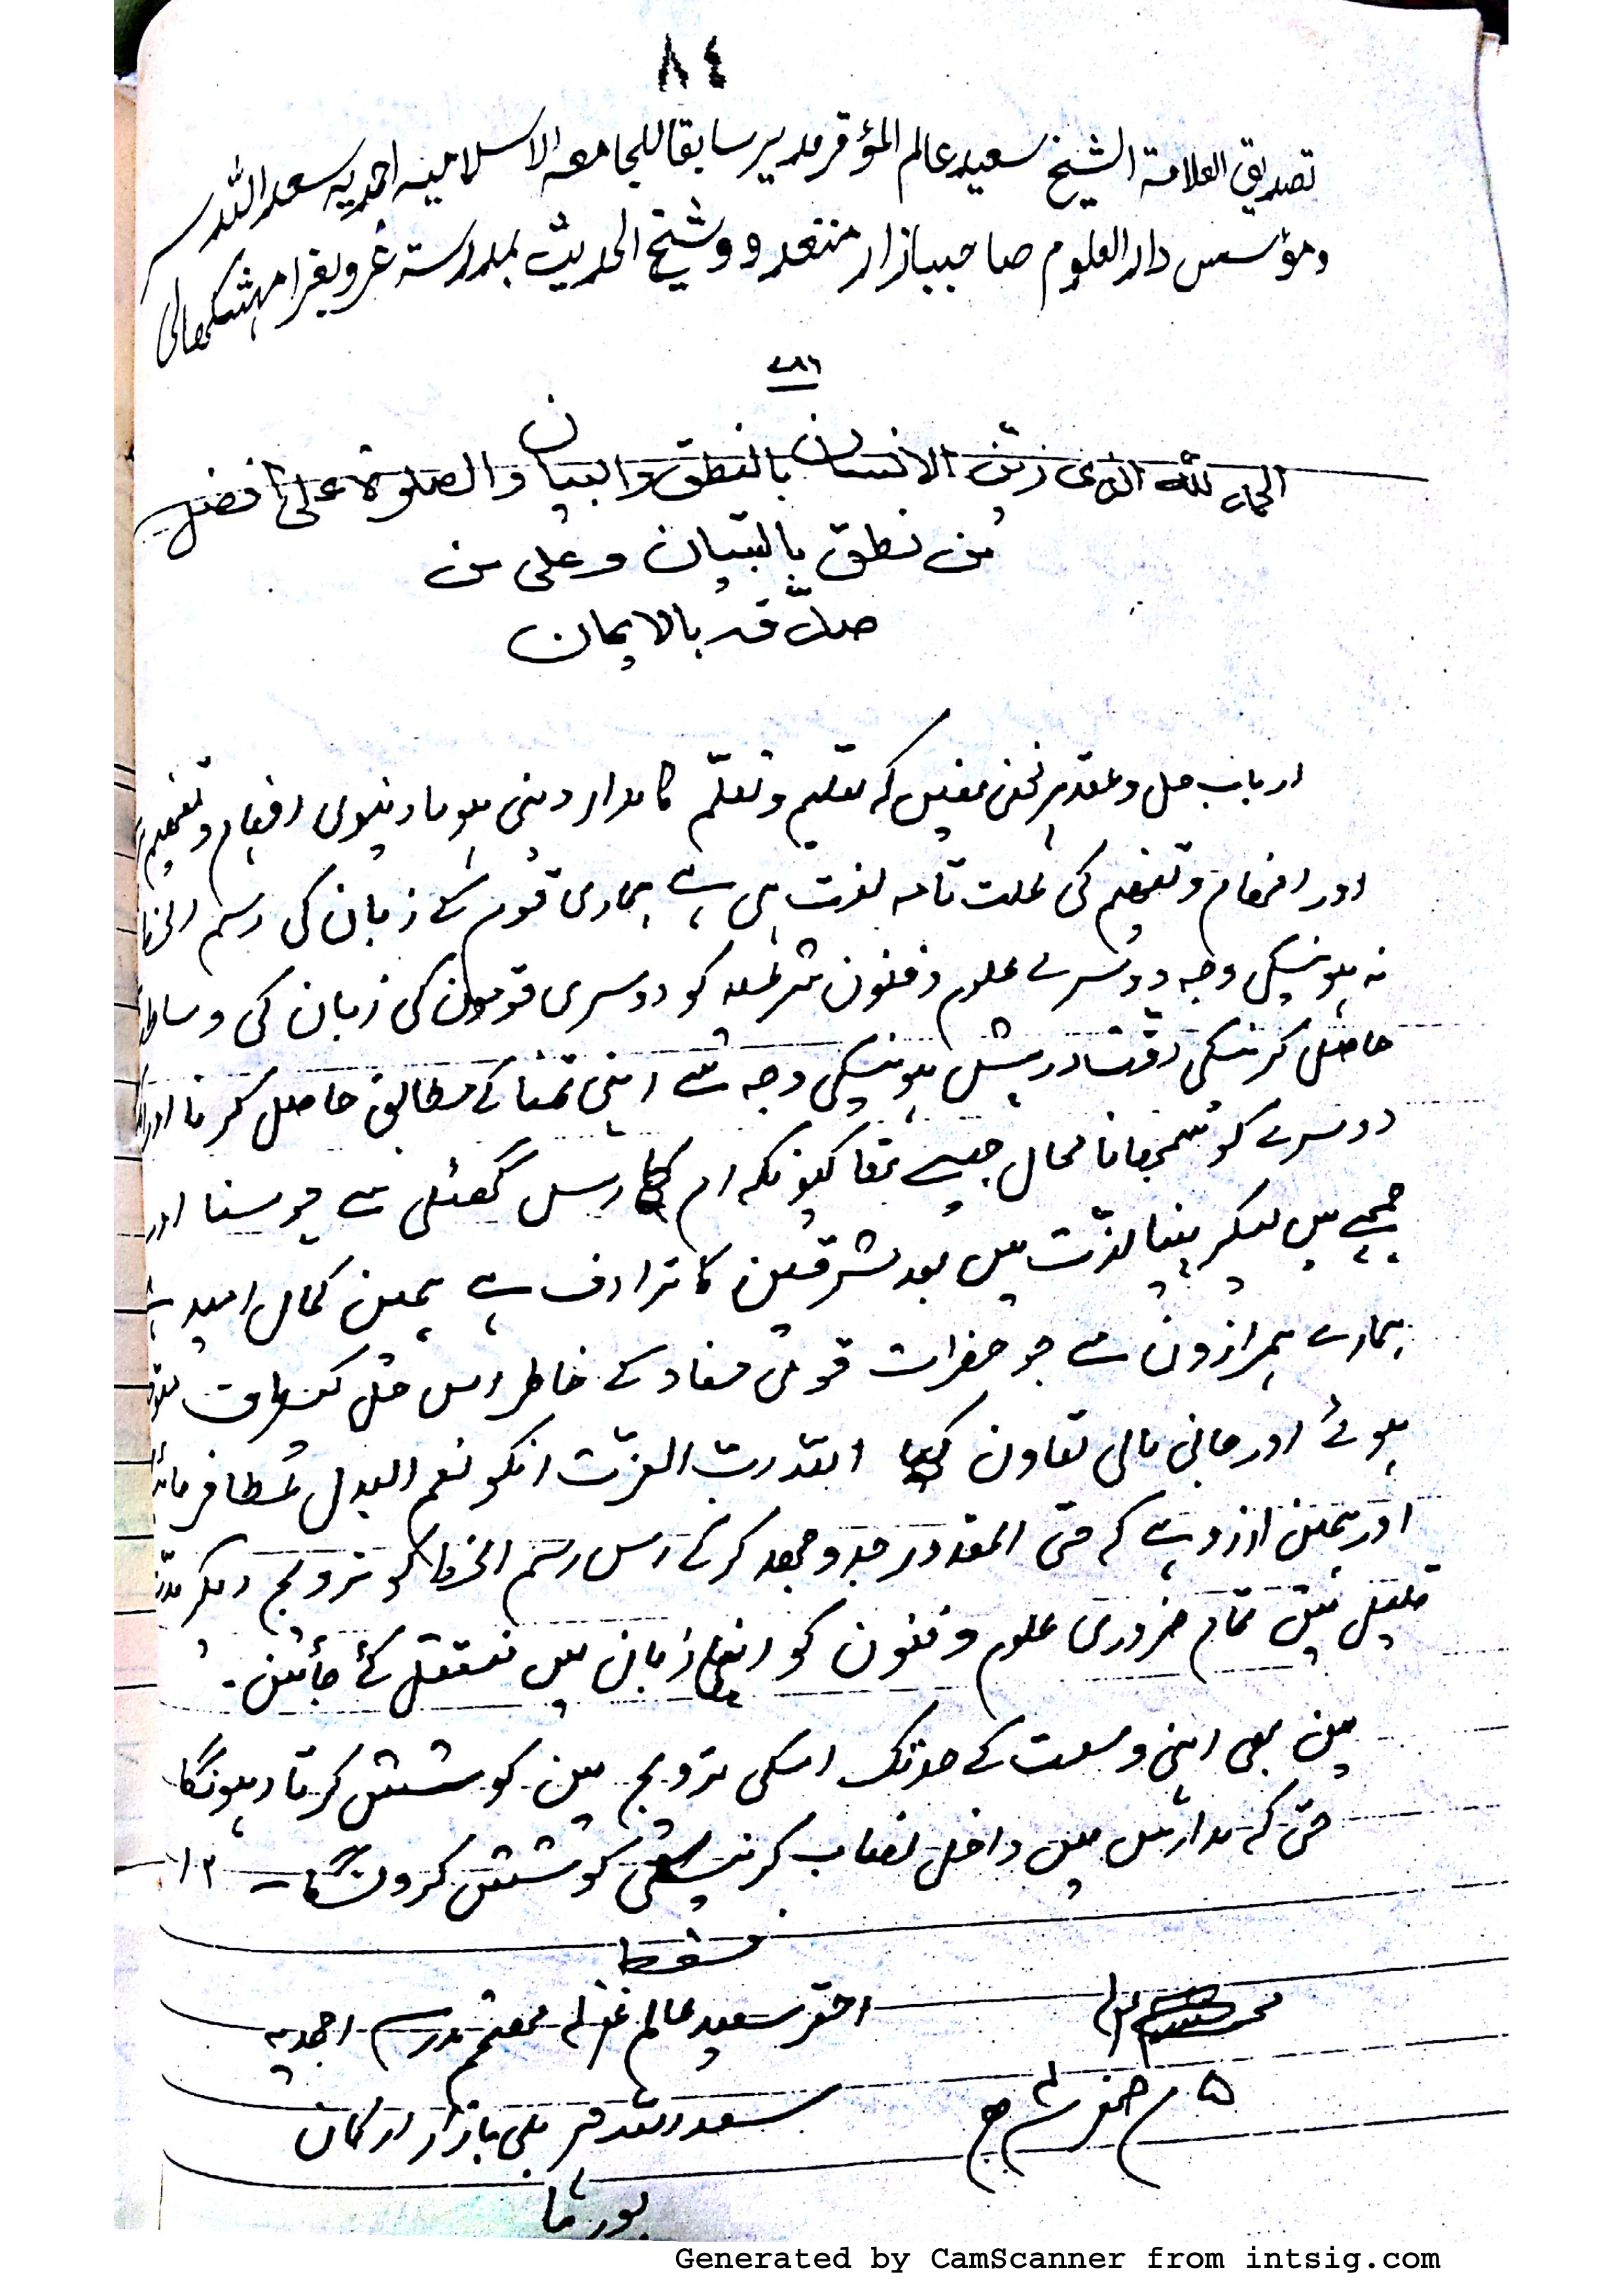 ٨٤
تصدیق العلامة الشیخ سعید عالم المؤقر مدیر سابقا للجامعه الاسلامیه احمدیه سعد اللہ
ومؤسس دار العلوم صاحب بازار منغدو وشیخ الحدیث بمدرسة
٧٨٦
الحمد للہ الذی زین الانسان بالنطق والبیان والصلوة علی افضل
من نطق بالتبیان وعلی من
صدّقہ بالایمان
ارباب حل وعقد پر مخفی نہیں کہ تعلیم وتعلّم کا مدار دینی ہو یا دنیوی افہام وتفہیم
اور افہام وتفہیم کی علت تامہ لغت ہی ہے ہماری قوم کے زبان کی رسم الخط
نہ ہونیکی وجہ دوسرے علوم وفنون شرعیہ کو دوسری قوموں کی زبان کی وساطت
حاصل کرنیکی دقت درپیش ہونیکی وجہ سے اپنی تمنا کے مطابق حاصل کرنا اور
دوسرے کو سمجھانا محال جیسے تھا کیونکہ ام کا رس گھٹلی سے چوسنا اور
چمچے میں لیکر پینا لذّت میں بعد مشرقین کا ترادف ہے ہمیں کمال امید ہے
ہمارے ہمرازوں سے جو حضرات قومی مفاد کے خاطر اس کیطرف
ہوئے اور جانی مالی تعاون کیا اللہ رب العزّت انکو نعم البدل عطا فرمائے
اور ہمیں ارزو ہے کہ حتی المقدور جد وجہد کرکے اس رسم الخط کو ترویج دیکر مدّت
قلیل میں تمام ضروری علوم وفنون کو اپنی زبان میں منتقل کئے جائیں۔
میں بھی اپنی وسعت کے حد تک اسکی ترویج میں کوشش کرتا رہونگا
حتی کہ مدارس میں داخل نصاب کرنیکی کوشش کروں گا۔ ١٢
فقط
احقر سعید عالم غفرلہ مہتمم مدرسہ احمدیہ
٥ صفر
سعد اللہ بازار ارکان
بورما
Generated by CamScanner from intsig.com